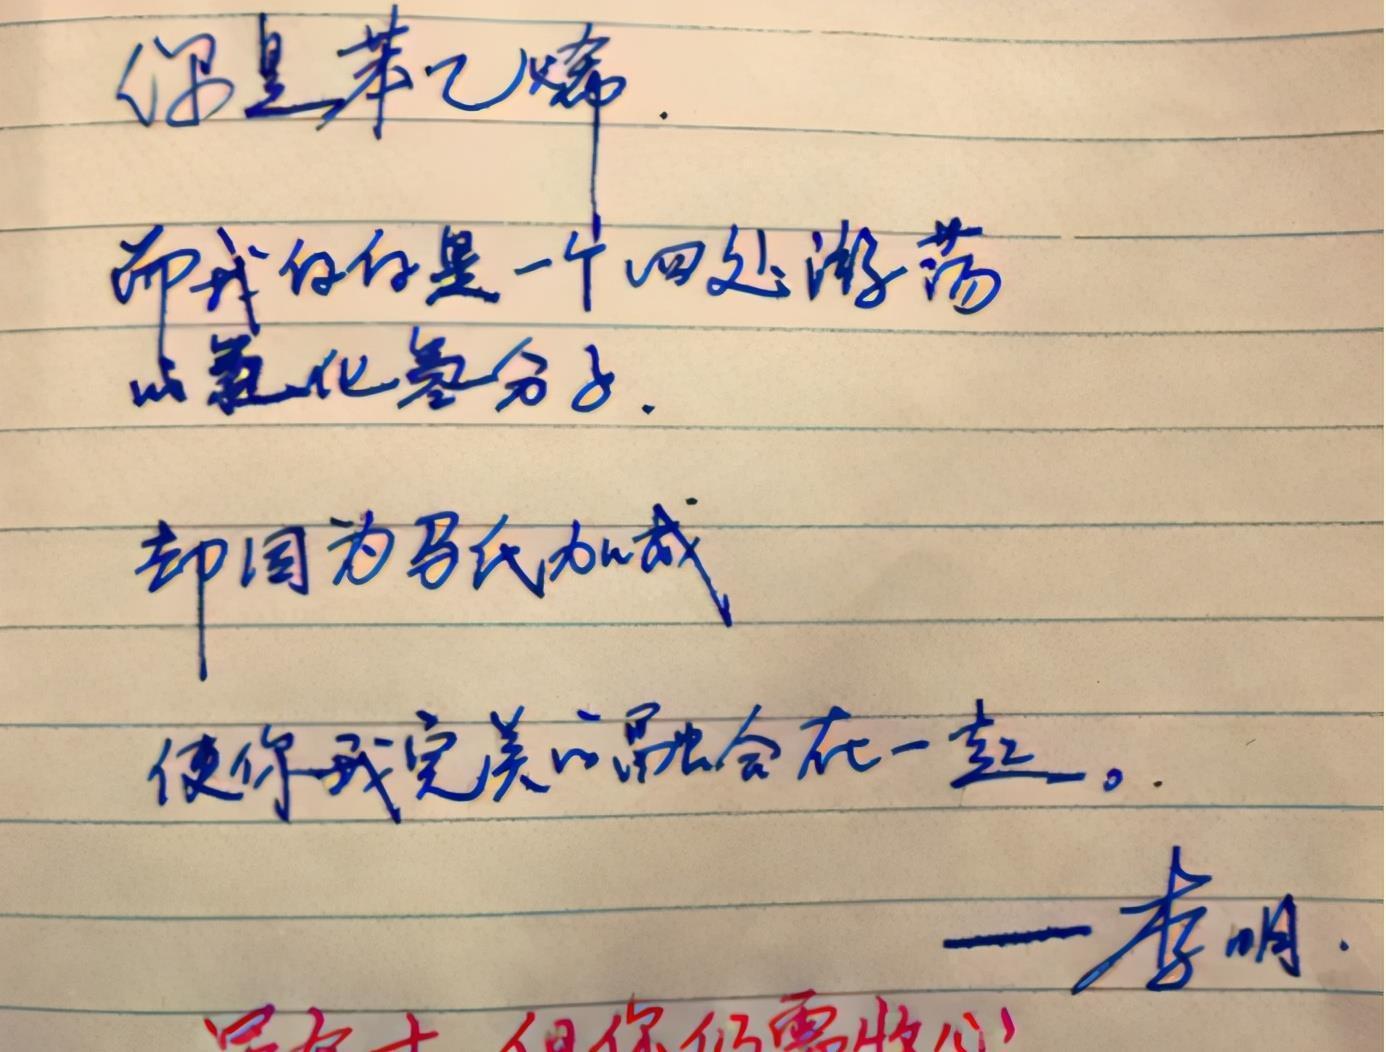 你是苯乙烯.
而我仅仅是一个四处游荡
的氯化氢分子.
却因为马氏加成
使你我完美的融合在一起。
——李明.
但你仍需收心